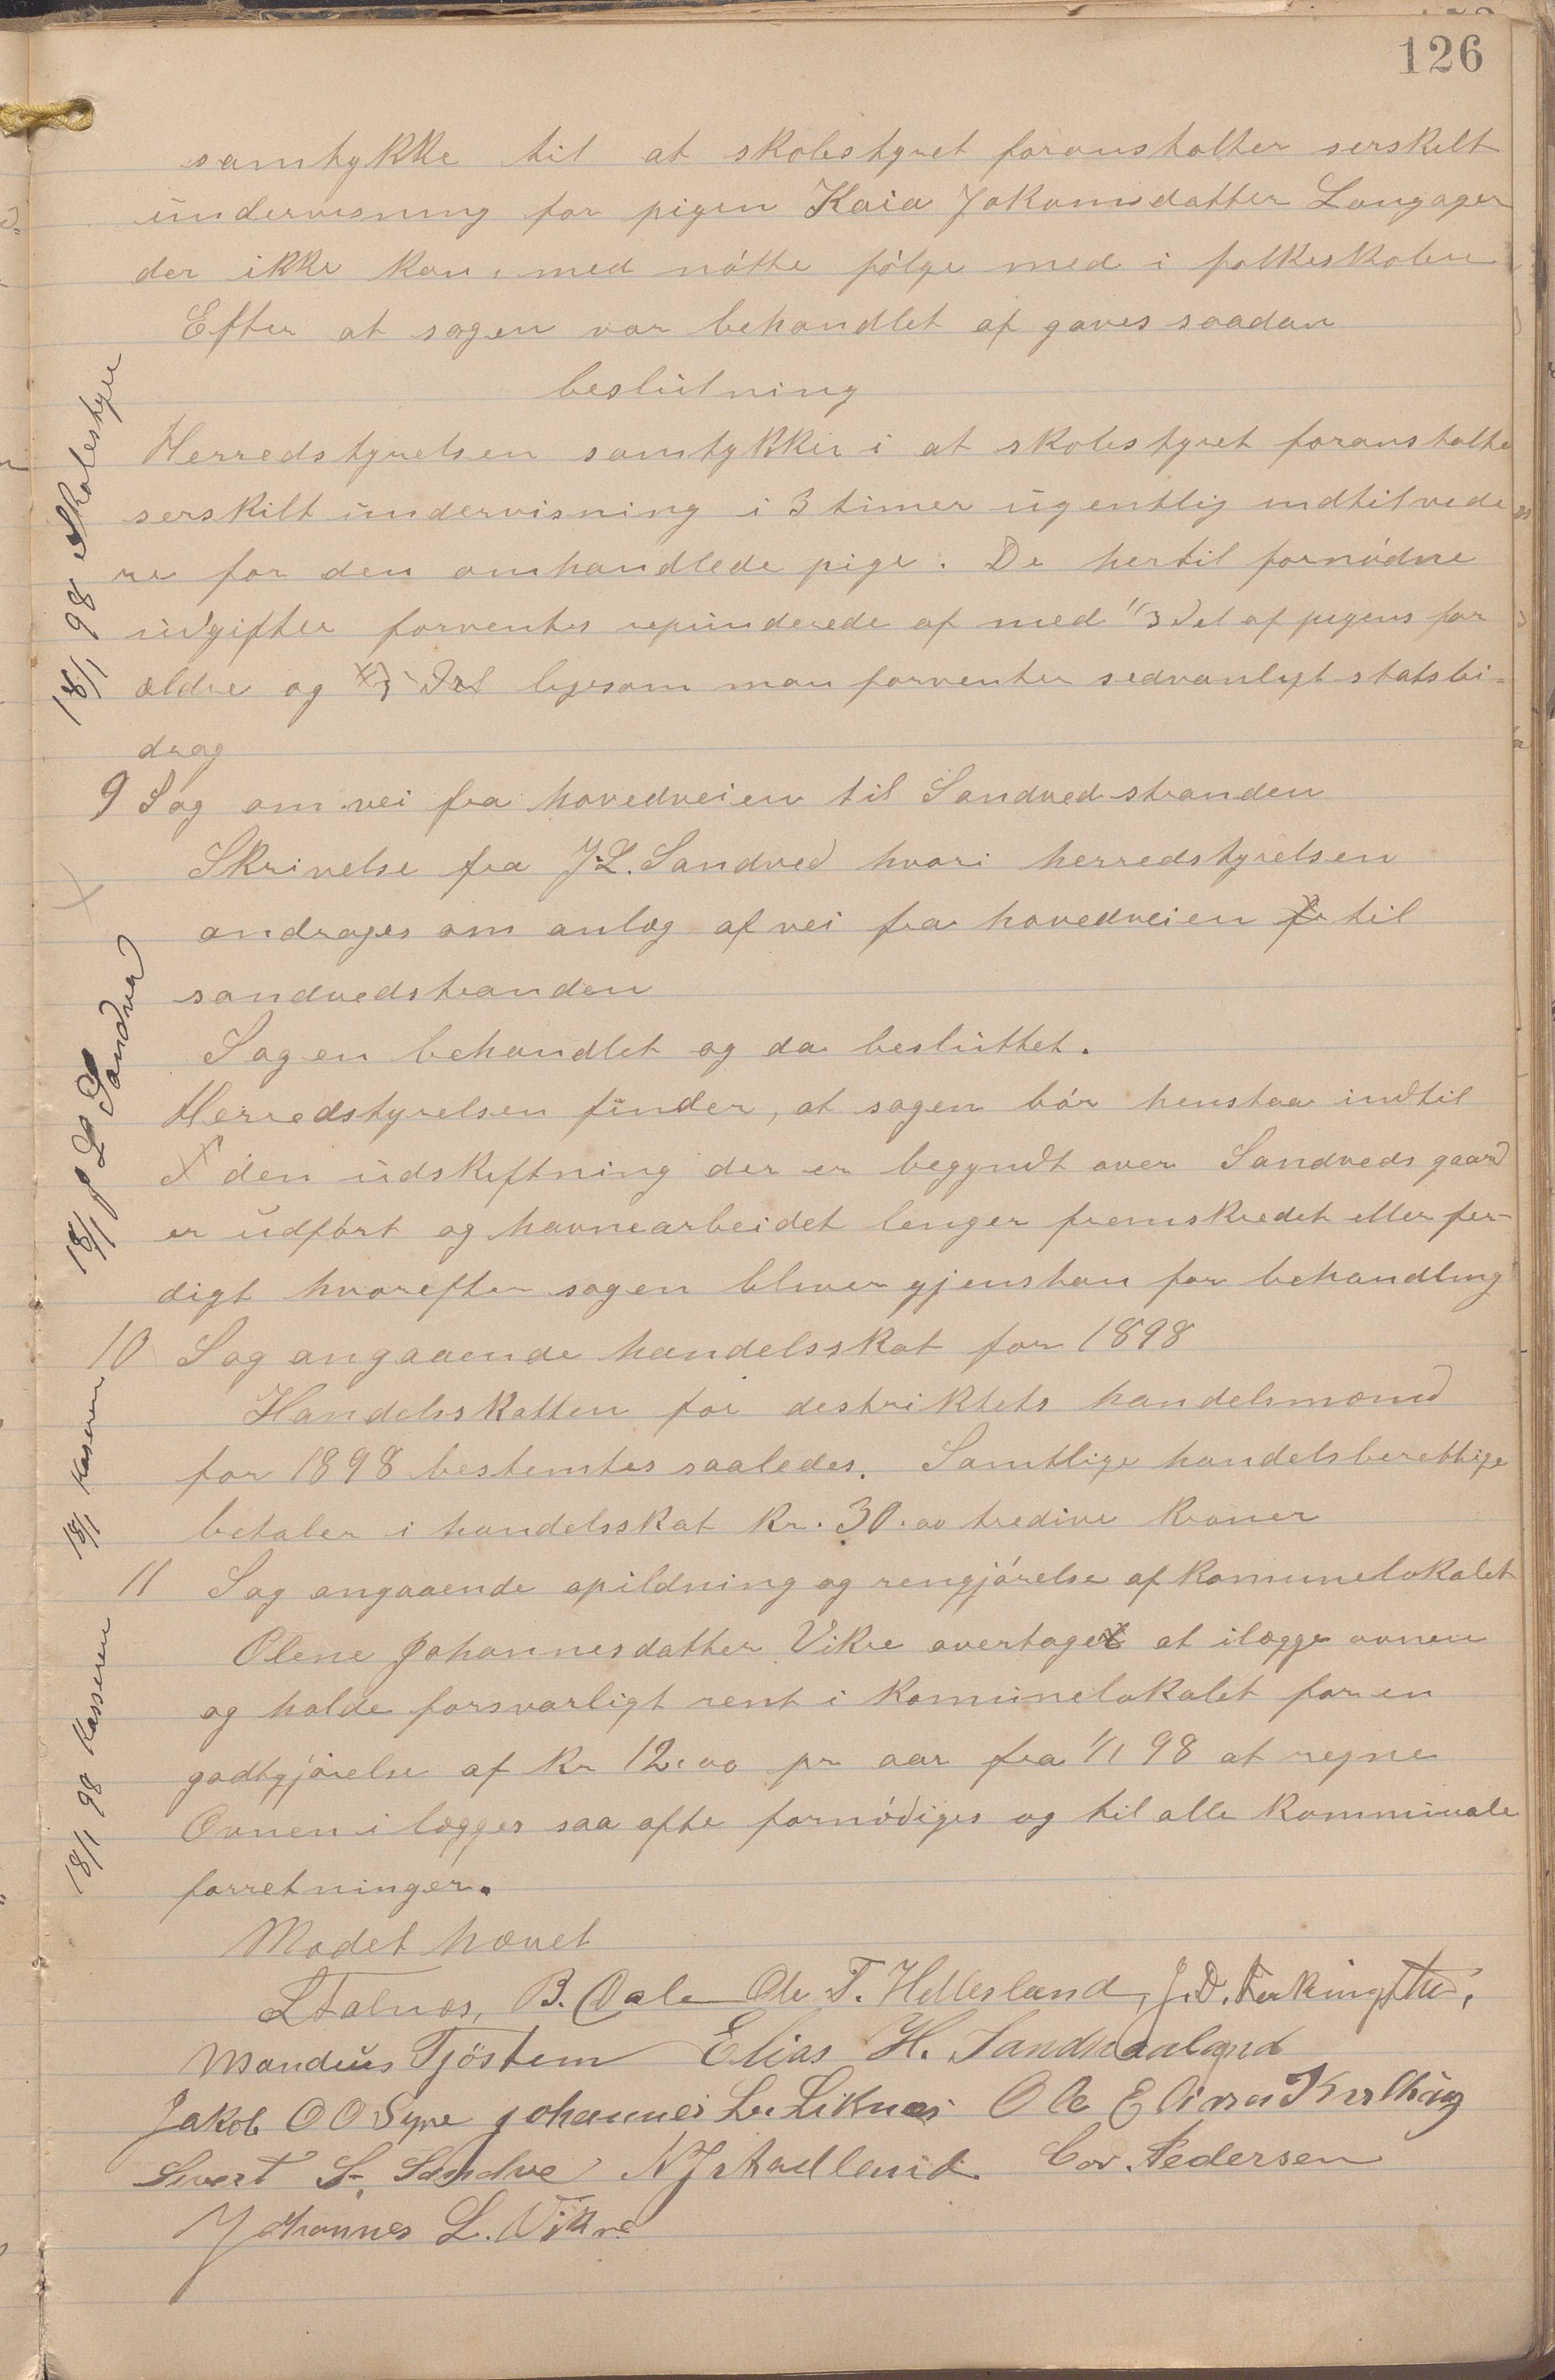 126
samtykke til at skolestyret foranstalter serskilt
undervisning for pigen Kaia Jakomdatter Langager
der ikke kan med nötte fölge med i folkeskolen
Efter at sagen var behandlet af gaves saadan
beslutning
Herredstyrelsen samtykker i at skolestyret foranstalte
serskilt undervisning i 3 timer ugentlig indtilvede
re for den omhandlede pige. De hertil fornödne
udgifter forventes repunderede af med 1/3 del af pigens for
ældre og del ligesom man forventer sedvanligt statsbi=
drag
18/1 98 Skolestyre
9 Sag om vei fra hovedveien til Sandvedstranden
Skrivelse fra J.L. Sandved hvori herredstyrelsen
andrages om anlæg af vei fra hovedveien til
sandvedstranden
Sagen behandlet og da besluttet.
Herredstyrelsen finder, at sagen bör henstaa indtil
den udskiftning der er begyndt over Sandveds gaard
er udfört og havnearbeidet lenger fremskredet eller fer-
digt hvorefter sagen bliver gjenstan for behandling
18/1 J L Sandve
10 Sag angaaende handelsskat for 1898
Handelsskatten for destriktets handelsmænd
for 1898 bestemtes saaledes. Samtlige handelsberettige
betaler i handelsskat Kr. 30.00 tredive Kroner
18/1 Kaseren
11 Sag angaaende opildning og rengjörelse af Komunelokalet
Olene Johannesdatter Vikre overtoges at ilægge ovnen
og holde forsvarligt rent i Komunelokalet for en
godtgjörelse af Kr 12.00 pr aar fra 1/1 98 at regne
Ovnen i lægges saa ofte fornödiges og til alle Kommunale
forretninger.
18/1 98 Kasseren
Mødet hævet
L Falnæs, B. Dale Ole T. Hellesland, J.D. Ferkingstad,
Mandius Tjöstem Elias H. Sandhaaland
Jakob O O Syre Johannes L. Liknes Ole Elias Kvilhaug
Sivert S. Sandve N J Aadland Cor. Pedersen
Johannes L. Vikre